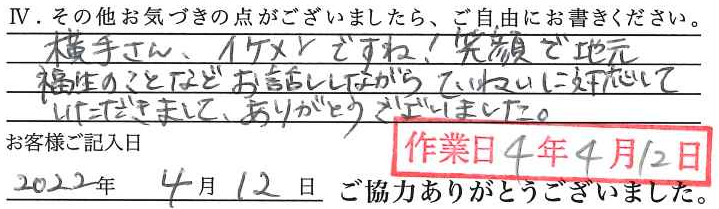 Ⅳ．その他お気づきの点がございましたら、ご自由にお書きください。
横手さん、イケメンですね！笑顔で地元
福生のことなどお話ししながらていねいに対応して
いただきまして、ありがとうございました。
お客様ご記入日
作業日4年4月12日
2022年 4月12日 ご協力ありがとうございました。